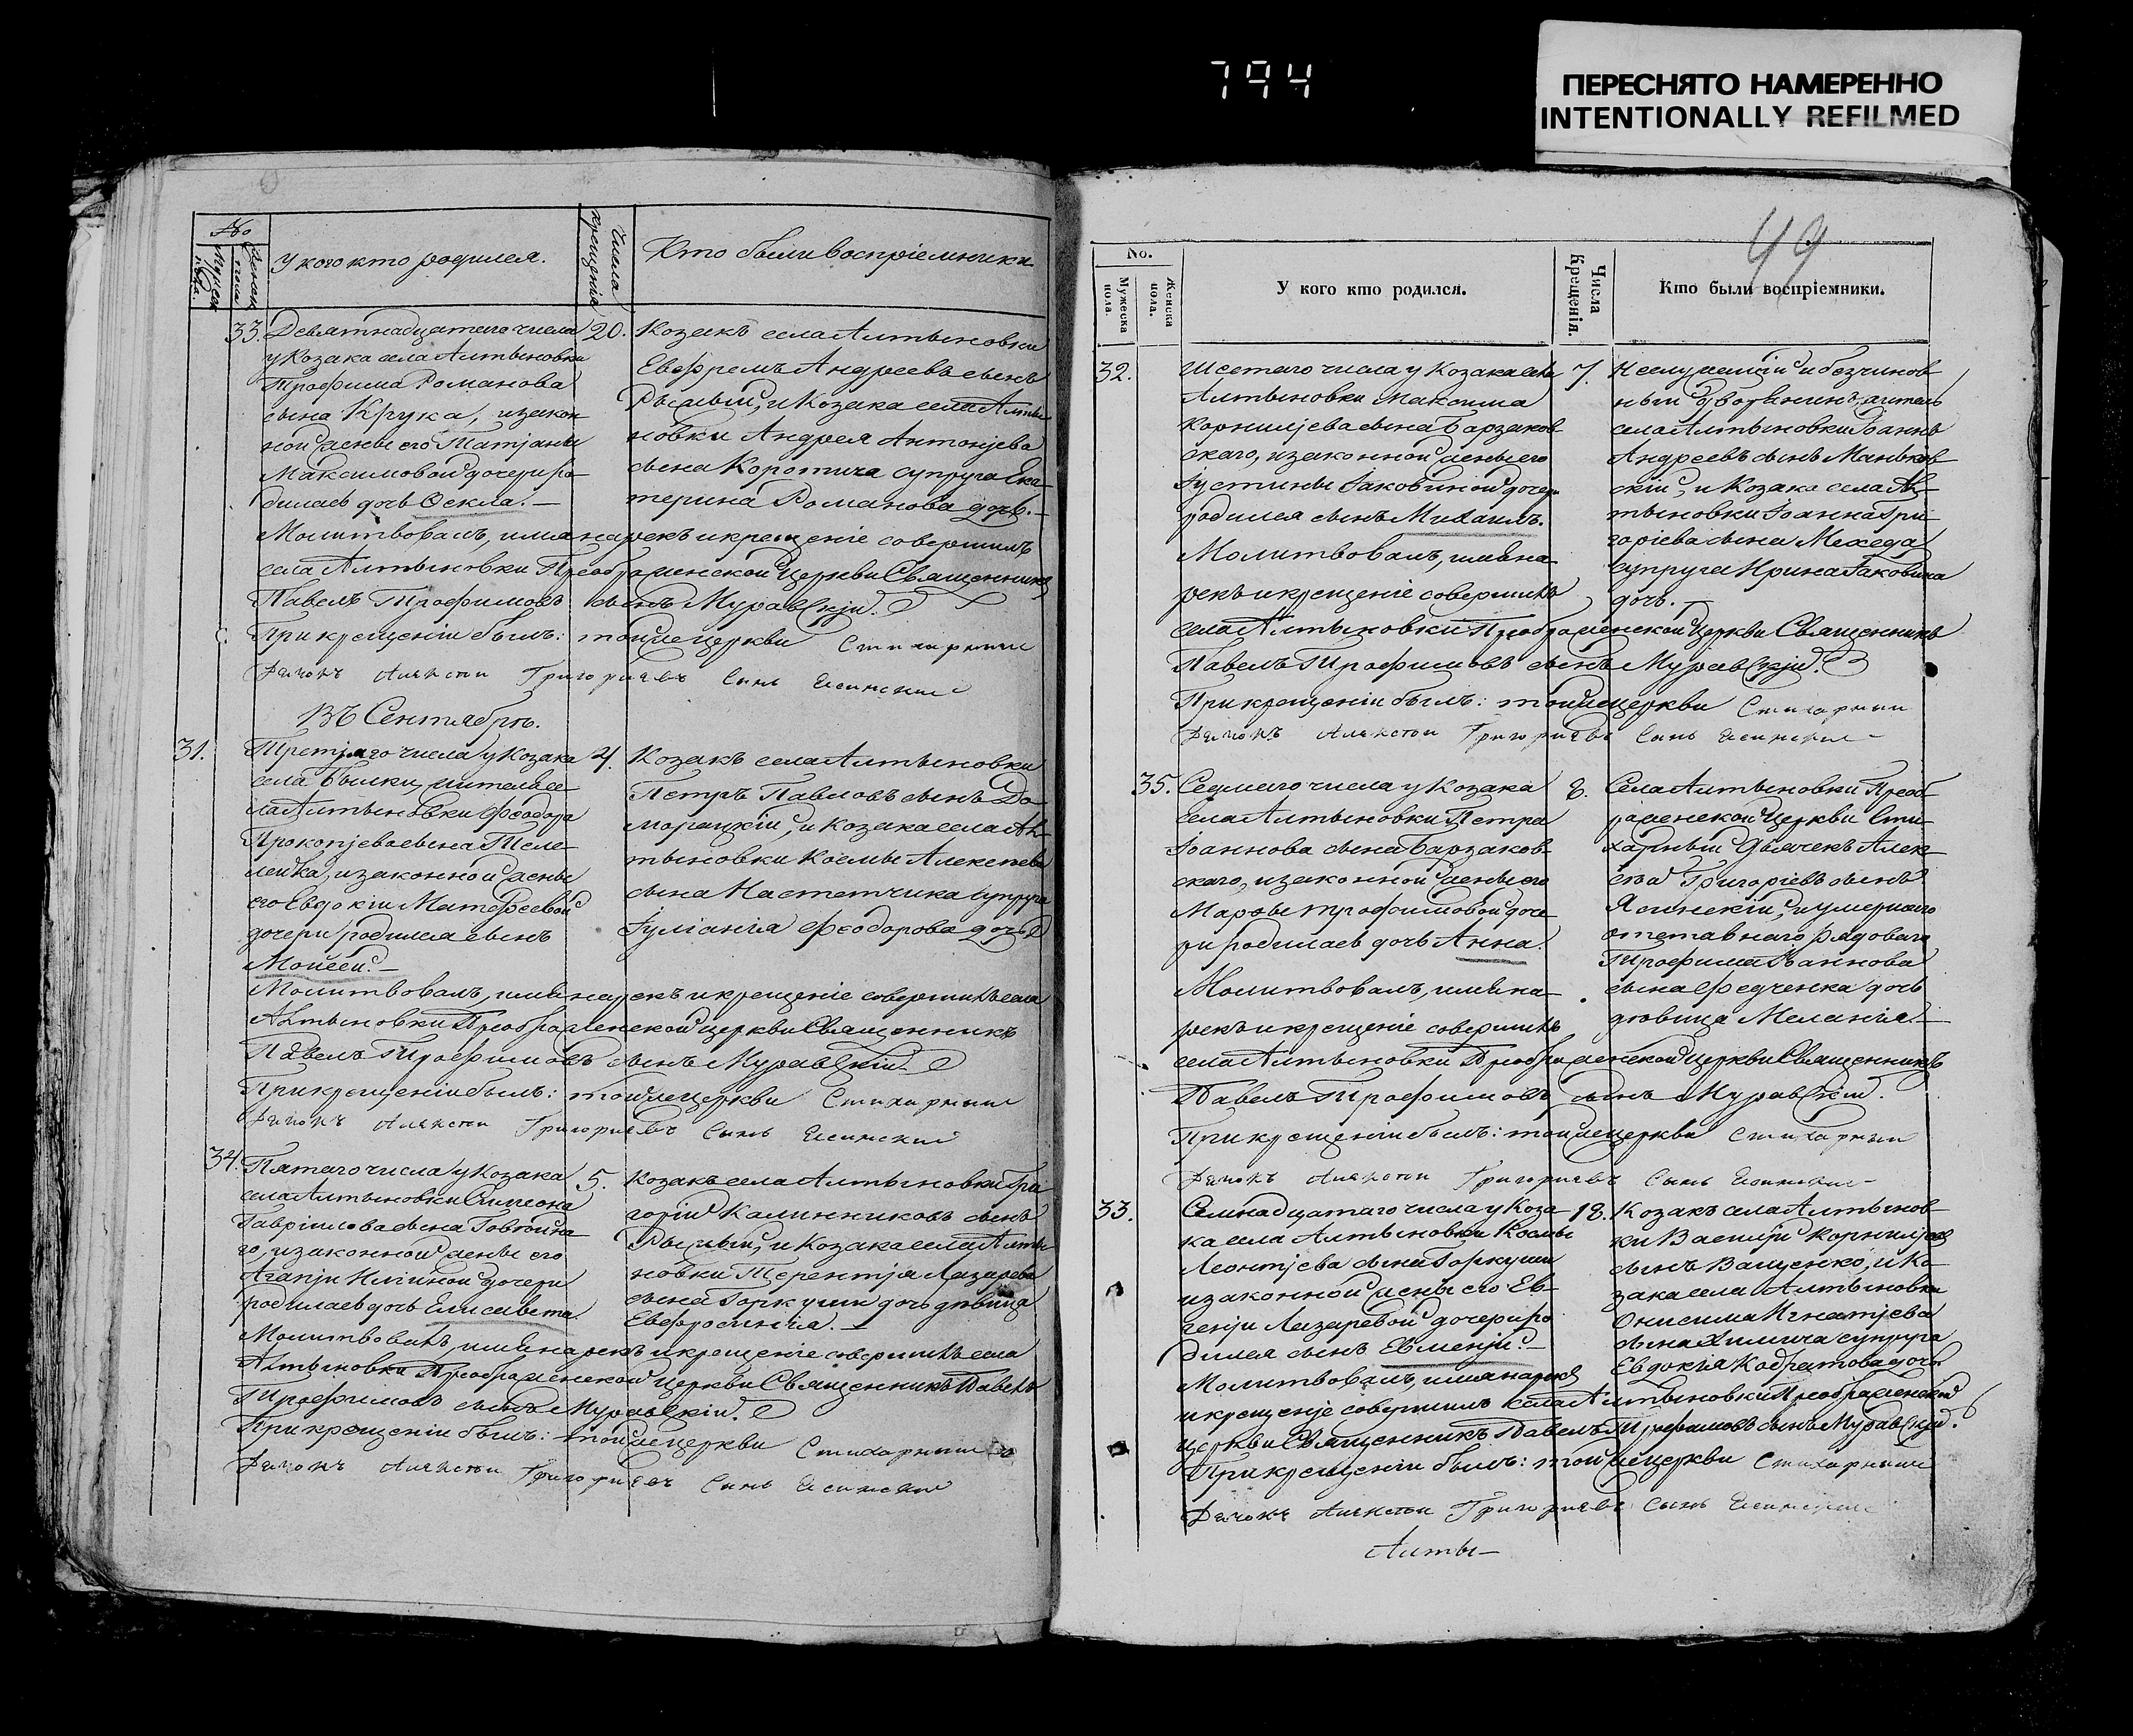 794
ПЕРЕСНЯТО НАМЕРЕННО
INTENTIONALLY REFILMED
№
Мужеска пола.
Женска пола
У кого кто родился.
Числа крещенія
Кто были воспріемники
33. Девятнадцатаго числа
у Козака села Алтыновки
Трофима Романова
сына Крука, и закон
ной жены его Татіаны
Максимовой дочери ро
дилась дочь Фекла. —
20. Козакъ села Алтыновки
Евфремъ Андреевъ сынъ
и Козака села Алты
новки Андрея Антоніева
сына Коротича супруга Ека
терина Романова дочь. —
Молитвовалъ, имя нарекъ и крещеніе совершилъ
села Алтыновки Преображенской церкви Священникъ
Павелъ Трофимовъ сынъ Муравскій.
При крещеніи былъ: той же церкви Стихарный
Дячокъ Алексѣй Григориевъ Сынъ Ясинский
Въ Сентябрѣ.
31. Третіяго числа у Козака
села Билки, жителя се
ла Алтыновки Феодора
Прокопіева сына Теле
лейка, и законной жены
его Евдокіи Матфеевой
дочери родился сынъ
Мойсей. —
4. Козакъ села Алтыновки
Петръ Павловъ сынъ До
морацкій, и Козака села Ал
тыновки Космы Алексеева
сына Настетчика супруга
Іуліанія Феодорова дочь
Молитвовалъ, имя нарекъ и крещеніе совершилъ села
Алтыновки Преображенской церкви Священникъ
Павелъ Трофимовъ сынъ Муравскій.
При крещеніи былъ: той же церкви Стихарный
Дячокъ Алексѣй Григориевъ Сынъ Ясинский
34. Пятаго числа у Козака
села Алтыновки Симеона
Гавріилова сына
го, и законной жены его
Агапіи Иліиной дочери
родилась дочь Елисавета.
5. Козакъ села Алтыновки Гри
горій Калинниковъ сынъ
и Козака села Алты
новки Терентія Лазарева
сына Горкуши дочь дѣвица
Евфросинія. —
Молитвовалъ, имя нарекъ и крещеніе совершилъ села
Алтыновки Преображенской церкви Священникъ Павелъ
Трофимовъ сынъ Муравскій.
При крещеніи былъ: той же церкви Стихарный
Дячокъ Алексѣй Григориевъ Сынъ Ясинский
49
No.
Мужеска пола.
Женска пола.
У кого кто родился.
Числа Крещенія.
Кто были воспріемники.
32. Шестаго числа у Козака села
Алтыновки Максима
Корниліева сына Барзаков
скаго, и законной жены его
Іустины Іаковиной дочери
родился сынъ Михаилъ.
7. Неслужащій и безчинов
ный дворянинъ, житель
села Алтыновки Іоаннъ
Андреевъ сынъ Маньков
скій, и Козака села Ал
тыновки Іоанна Гри
горіева сына Мехеда
супруга Ирина Іаковина
дочь. —
Молитвовалъ, имя на
рекъ и крещеніе совершилъ
села Алтыновки Преображенской церкви Священникъ
Павелъ Трофимовъ сынъ Муравскій.
При крещеніи былъ: той же церкви Стихарный
Дячокъ Алексѣй Григориевъ Сынъ Ясинский
35. Седмаго числа у Козака
села Алтыновки Петра
Іоаннова сына Барзаков
скаго, и законной жены его
Марфы Трофимовой доче
ри родилась дочь Анна.
8. Села Алтыновки Преоб
раженской Церкви Сти
харный Дьячекъ Алек
сѣй Григоріевъ сынъ
Ясинскій, и умершаго
отставнаго рядоваго
Трофима Іоаннова
сына Федченка дочь
дѣвица Меланія. —
Молитвовалъ, имя на
рекъ и крещеніе совершилъ
села Алтыновки Преображенской Церкви Священникъ
Павелъ Трофимовъ сынъ Муравскій.
При крещеніи былъ: той же церкви Стихарный
Дячокъ Алексѣй Григориевъ Сынъ Ясинский
33. Семнадцатаго числа у Коза
ка села Алтыновки Космы
Леонтіева сына Горкуши
и законной жены его Ев
геніи Лазаревой дочери ро
дился сынъ Евменій. —
18. Козакъ села Алтынов
ки Василій Корниліевъ
сынъ Ващенко, и Ко
зака села Алтыновки
Онисима Игнатіева
сына Химича супруга
Евдокія Кодратова дочь
Молитвовалъ, имя нарекъ
и крещеніе совершилъ села Алтыновки Преображенской
церкви Священникъ Павелъ Трофимовъ сынъ Муравскій.
При крещеніи былъ: той же церкви Стихарный
Дячокъ Алексѣй Григориевъ Сынъ Ясинский
Алты—